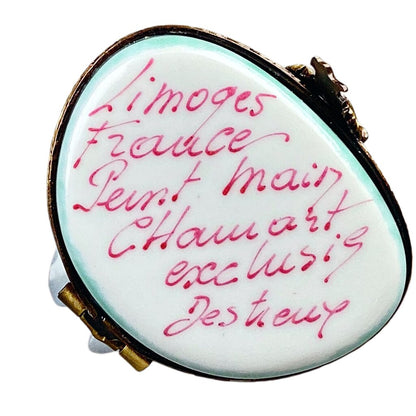 Limoges
France
Peint Main
CHamart
exclusif